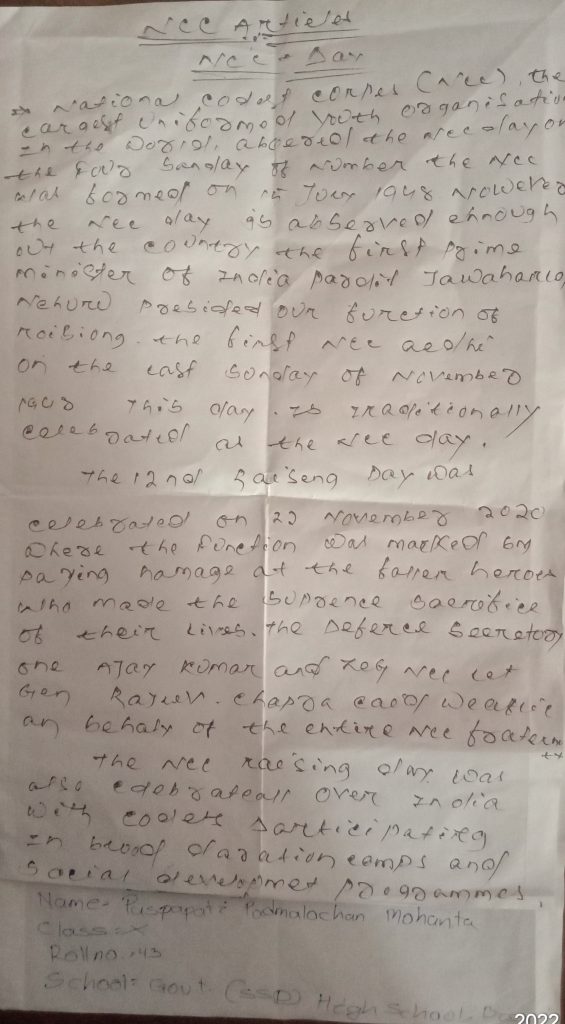 NCC Articles
NCC - Day
National codet corpes (NCC), the
largest uniformed youth organisation
In the World, abserved the NCC day on
the four Sanday of Number the NCC
was formed on 15 July 1948 However
the NCC day is observed
out the country the first prime
minister of India Pandit Jawaharlal
Nehuru Presided our function of
the first NCC
on the last Sonday of November
This day. Is Traditionally
celebrated as the NCC day.
The 12nd Raiseng Day was
celebrated on 22 November 2020
where the function was marked by
paying hamage at the fallen heroes
who made the Suprence Sacrifice
of their Lives. The Defence Secretory
one Ajay Kumar and NCC Let
Gen Rajeev. Chapra
an behaly of the entire NCC
The NCC raeising day was
also over India
with codets Participating
In blood daration camps and
Social programmes.
Name- Padmalochan Mohanta
Class- X
Roll no. 43
School- Govt. (SSD) High School.
2022